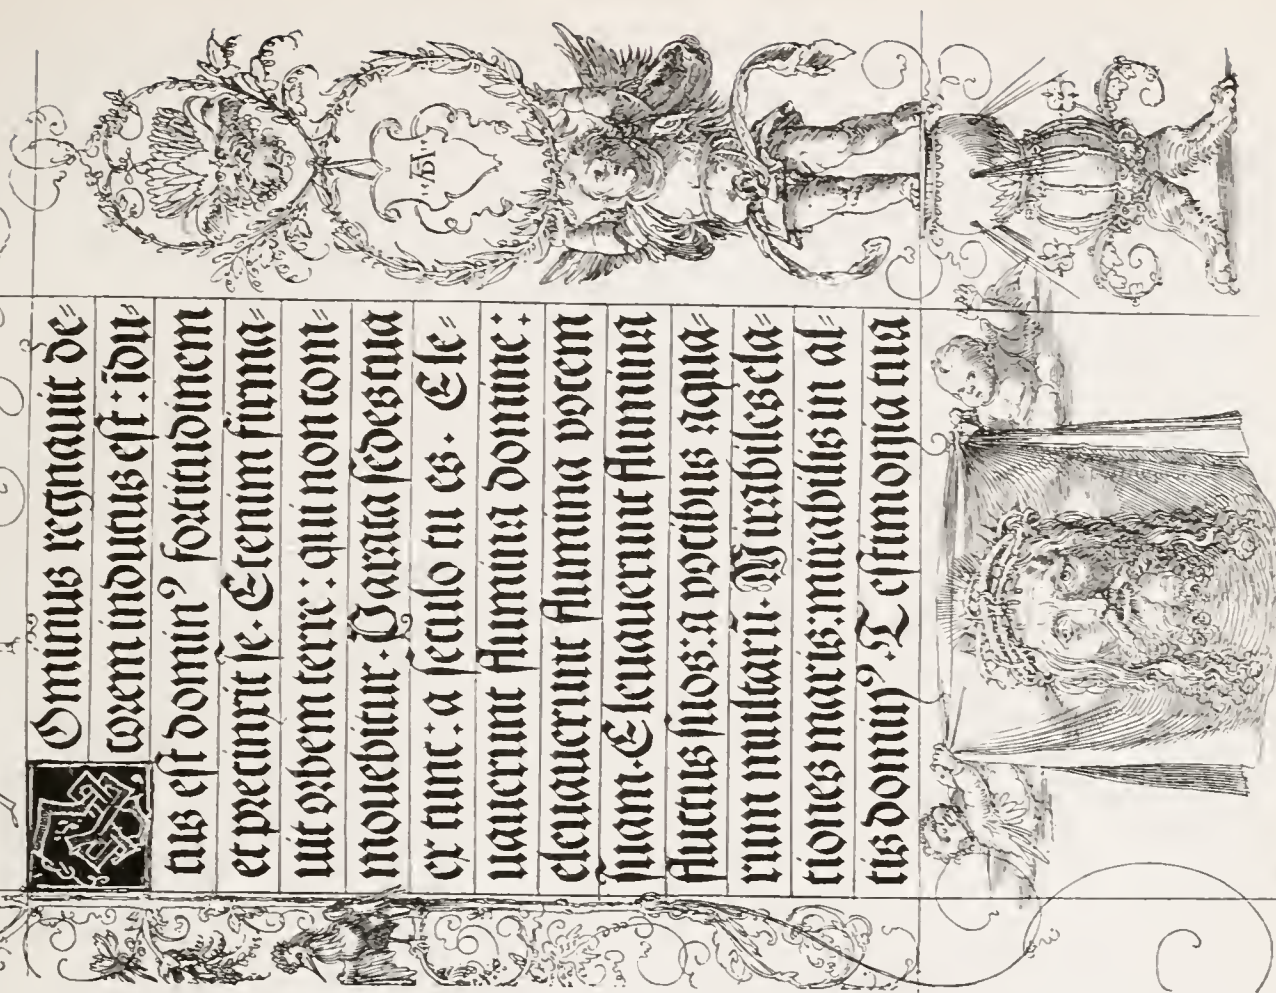 DOminus regnauit de=
corem indutus est : īdu=
tus est dominꝰ fortitudinem
et precinxit se. Etenim firma=
uit orbem terre : qui non com=
mouebitur. Parata sedes tua
ex tunc : a seculo tu es. Ele=
uauerunt flumina domine :
eleuauerunt flumina vocem
suam. Eleuauerunt flumina
fluctus suos : a vocibus aqua=
rum multarū. Mirabiles ela=
tiones maris : mirabilis in al=
tis dominꝰ. Testimonia tua
AD